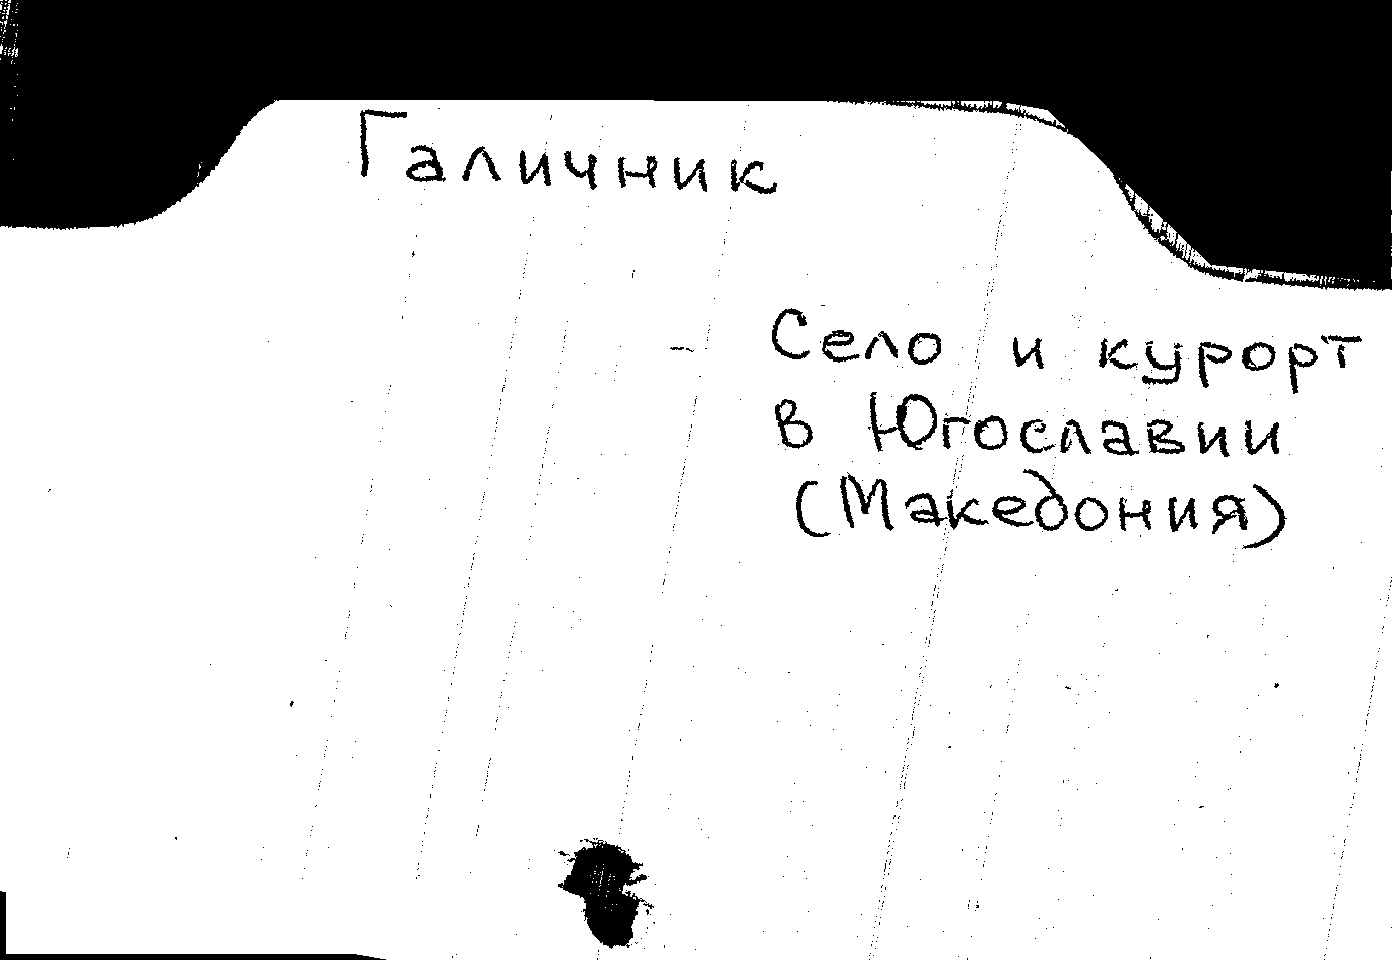 Галичник
– Село и курорт
в Югославии
(Македония)